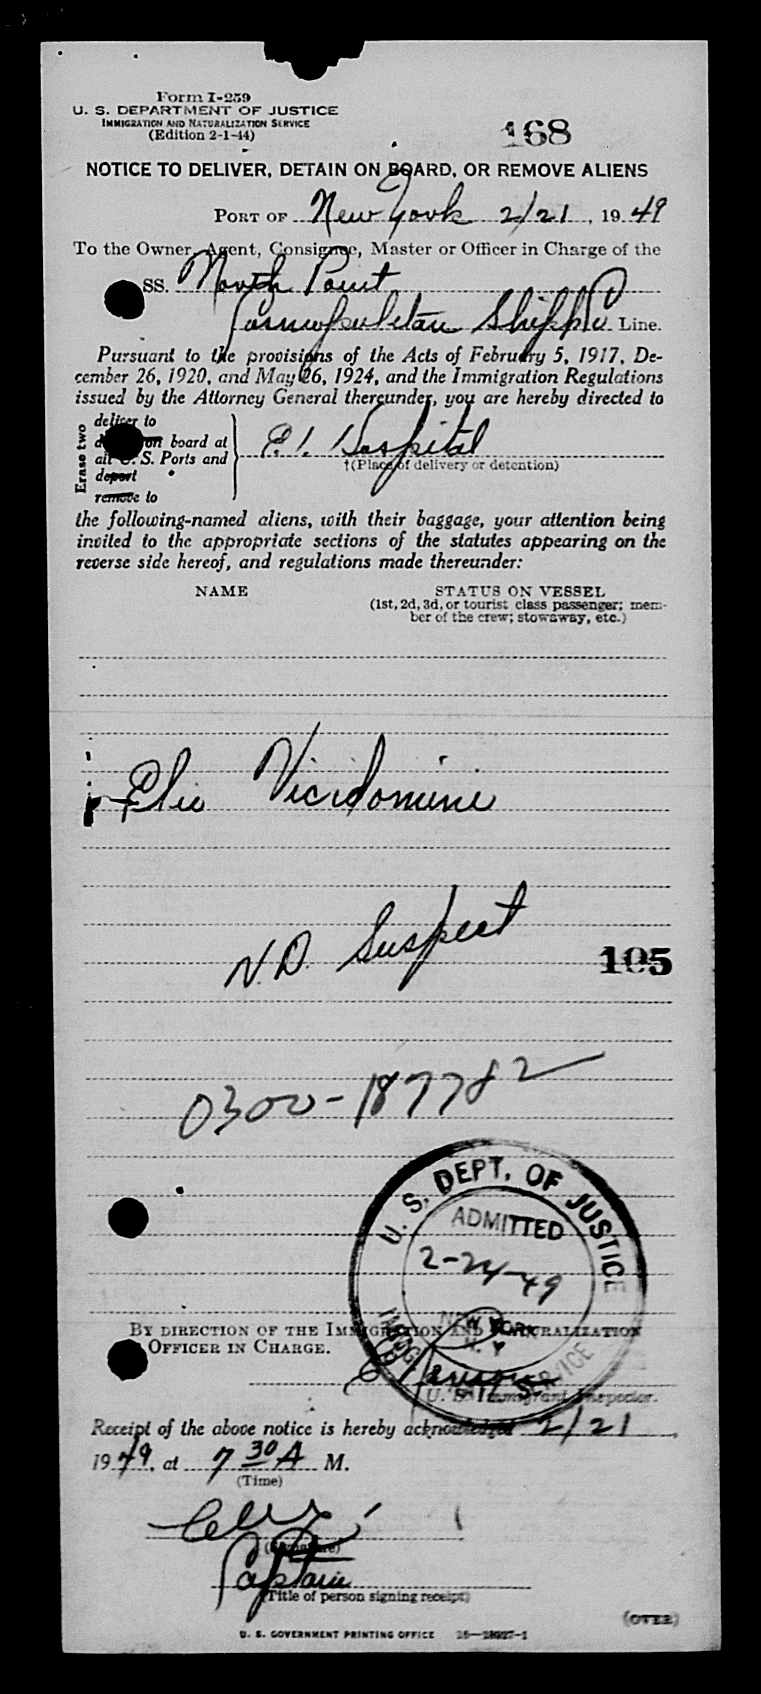 Form I-259
U. S. DEPARTMENT OF JUSTICE
IMMIGRATION AND NATURALIZATION SERVICE
(Edition 2-1-44)
168
NOTICE TO DELIVER, DETAIN ON BOARD, OR REMOVE ALIENS
PORT OF New York 2/21, 1949
To the Owner, Agent, Consignee, Master or Officer in Charge of the
SS. North Point
Cosmopolitan Shipp Co Line.
Pursuant to the provisions of the Acts of February 5, 1917, De-
cember 26, 1920, and May 26, 1924, and the Immigration Regulations
issued by the Attorney General thereunder, you are hereby directed to
Erase two
deliver to
on board at
all U. S. Ports and
deport
remove to
E. I. Hospital
†(Place of delivery or detention)
the following-named aliens, with their baggage, your attention being
invited to the appropriate sections of the statutes appearing on the
reverse side hereof, and regulations made thereunder:
NAME
STATUS ON VESSEL
(1st, 2d, 3d, or tourist class passenger; mem-
ber of the crew; stowaway, etc.)
Elio Vicidomini
V.D. Suspect
105
0300-187782
U. S. DEPT. OF JUSTICE
ADMITTED
2-24-49
NEW YORK
N. Y.
BY DIRECTION OF THE IMMIGRATION AND NATURALIZATION
OFFICER IN CHARGE.
U. S. Immigrant Inspector.
Receipt of the above notice is hereby acknowledged 2/21,
1949, at 7 30 A M.
(Time)
(Signature)
Captain
(Title of person signing receipt)
(OVER)
U. S. GOVERNMENT PRINTING OFFICE 16—18027-1